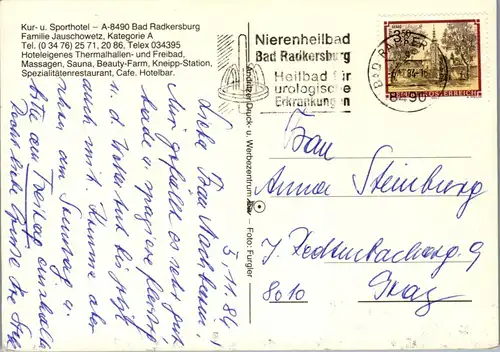 Kur- u. Sporthotel – A-8490 Bad Radkersburg
Familie Jauschowetz, Kategorie A
Tel. (0 34 76) 25 71, 20 86, Telex 034395
Hoteleigenes Thermalhallen- und Freibad,
Massagen, Sauna, Beauty-Farm, Kneipp-Station,
Spezialitätenrestaurant, Cafe. Hotelbar.
Nierenheilbad
Bad Radkersburg
Heilbad für
urologische
Erkrankungen
BAD RADKER
84-1
8490
ÖSTERREICH
Druck- u. Werbezentrum
Foto: Furgler
5.11.84
Liebe Frau Nachbarin!
Mir gefällt es sehr gut,
bade u. spaziere fleissig
u. d. Wetter tut bis jetzt
auch mit. Komme aber
schon am Sonntag u.
bitte am Freitag einheizen
Frau
Anna Steinburg
J. Redtenbacherg. 9
8010 Graz